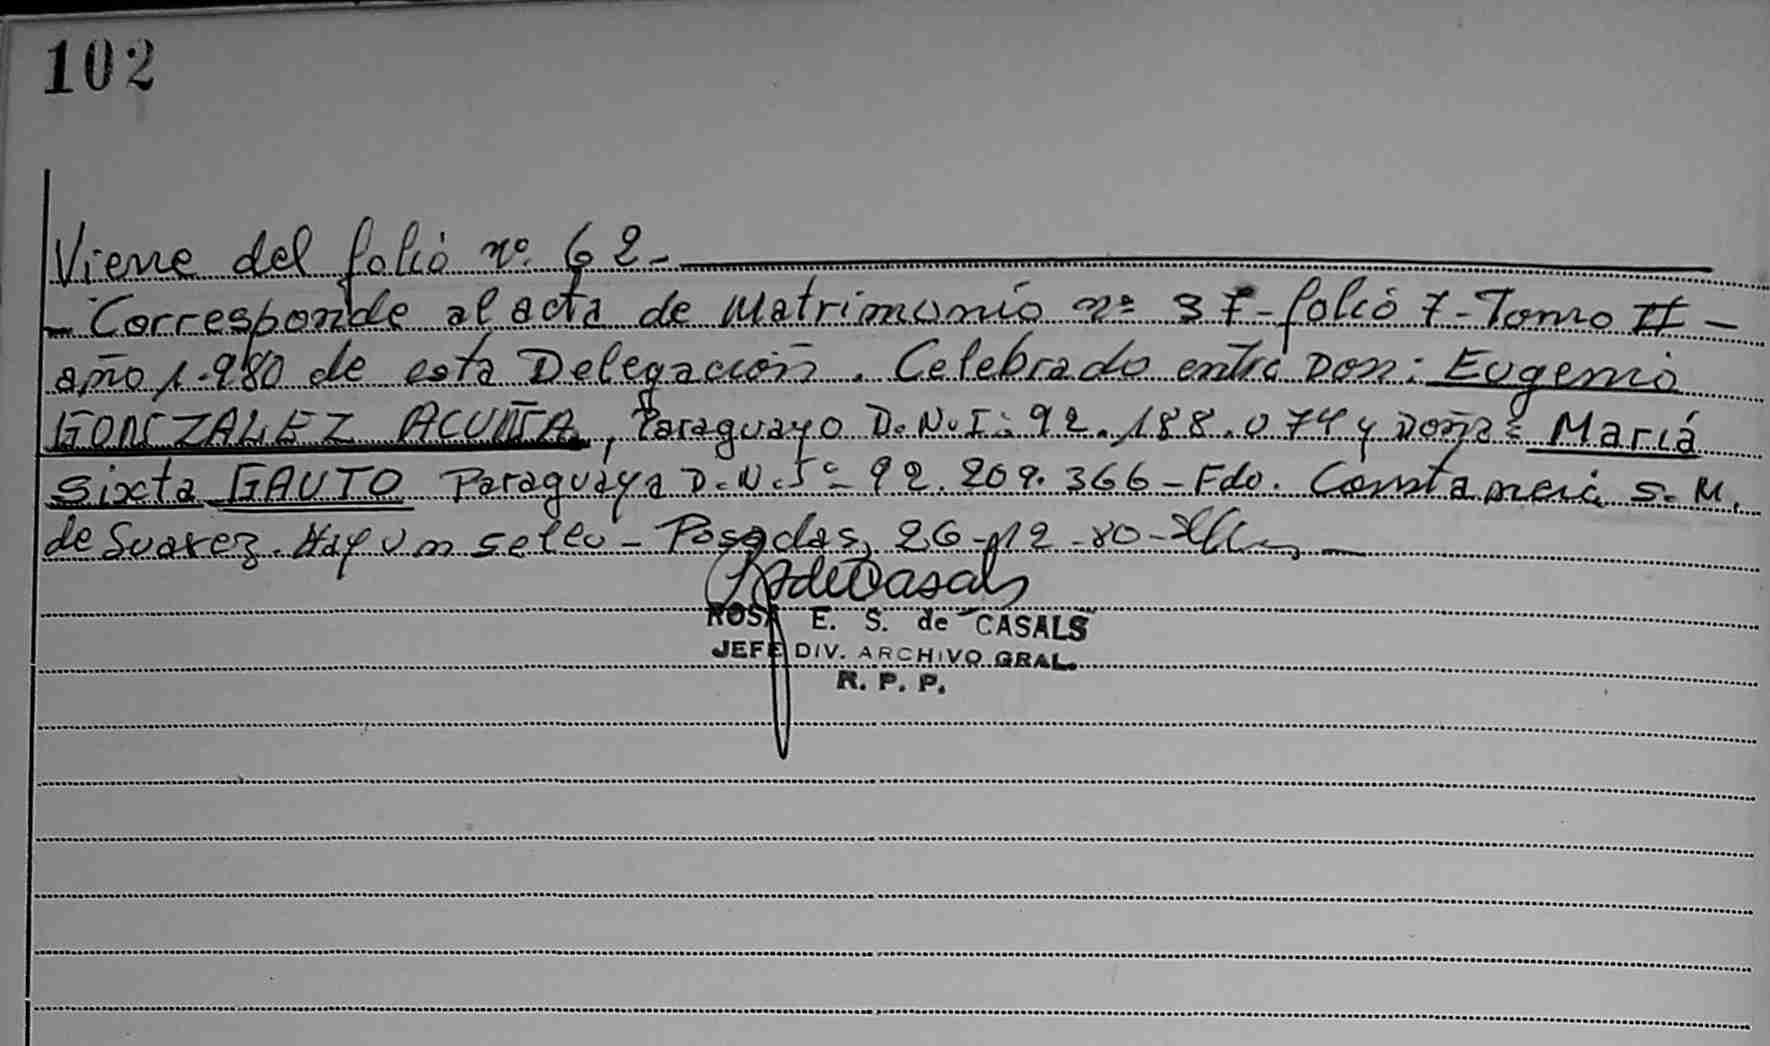 102
Viene del folio nº. 62-
- Corresponde al acta de Matrimonio nº 37-folio 7-Tomo II-
año 1.980 de esta Delegación. Celebrado entre Don: Eugenio
GONZALEZ ACUÑA, Paraguayo D.N.I: 92.188.074 y Doña: María
Sixta GAUTO Paraguaya D.N.Iº- 92.209.366-Fdo. Constancia S. M.
de Suarez. Hay un sello- Posadas, 26-12-80-
ROSA E. S. de CASALS
JEFE DIV. ARCHIVO GRAL.
R. P. P.